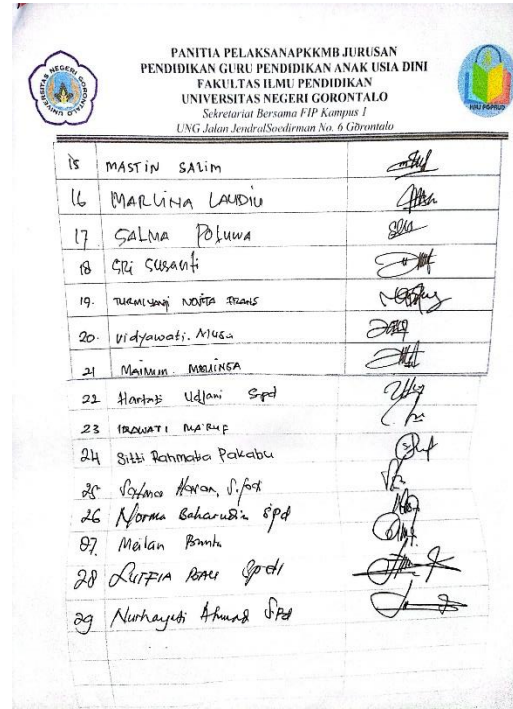 PANITIA PELAKSANAPKKMB JURUSAN
PENDIDIKAN GURU PENDIDIKAN ANAK USIA DINI
FAKULTAS ILMU PENDIDIKAN
UNIVERSITAS NEGERI GORONTALO
Sekretariat Bersama FIP Kampus 1
UNG Jalan JendralSoedirman No. 6 G0rontalo
UNIVERSITAS NEGERI GORONTALO
HMJ PGPAUD
15 MASTIN SALIM
16 MARLINA LAUDIU
17 SALMA POLUWA
18 SRI SUSANTI
19. NOVITA FRANS
20. Vidyawati. Musa
21 MAIMUN
22 Hartati Udjani Spd
23 IRAWATI MA'RUF
24 Sitti Rahmatia Pakabu
25 Hasan, S.Pd
26 Norma Baharudin Spd
27. Meilan
28 LUTFIA
29 Nurhayati Ahmad SPd